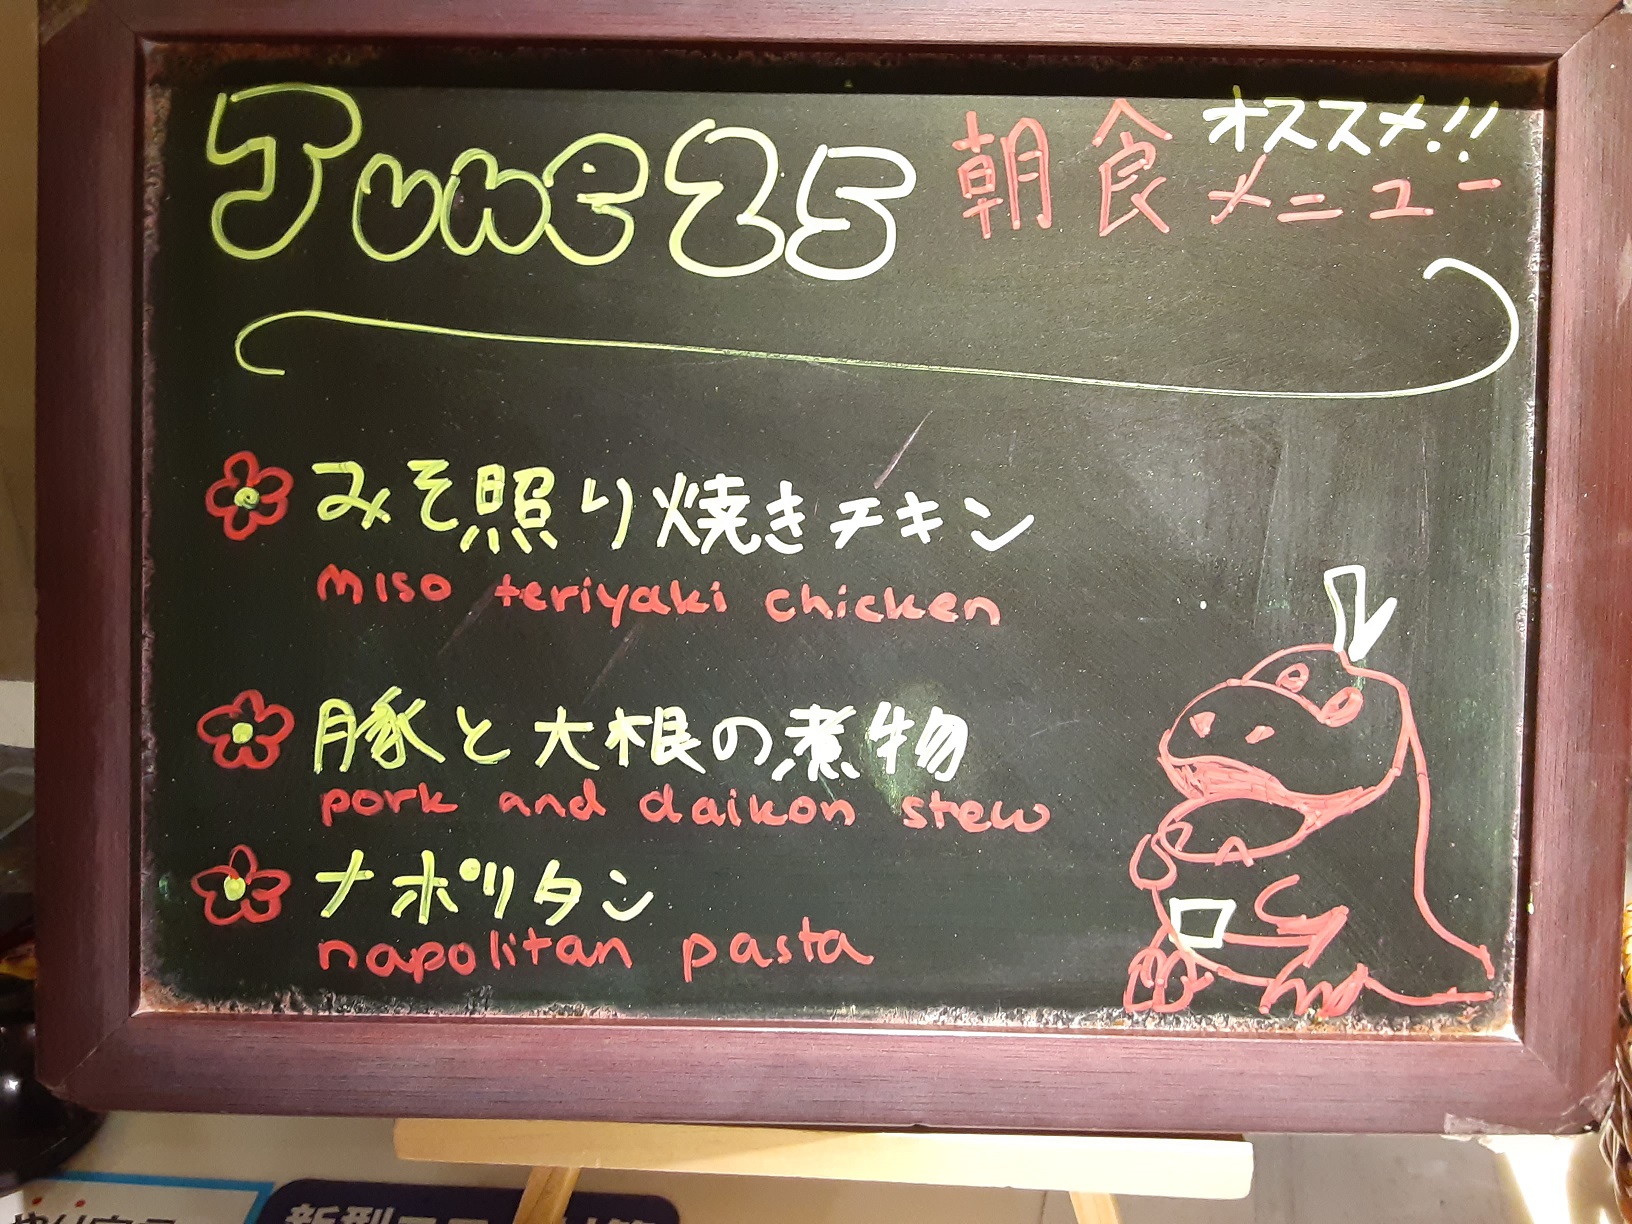 June 25 朝食
オススメ!!
メニュー
みそ照り焼きチキン
miso teriyaki chicken
豚と大根の煮物
pork and daikon stew
ナポリタン
napolitan pasta